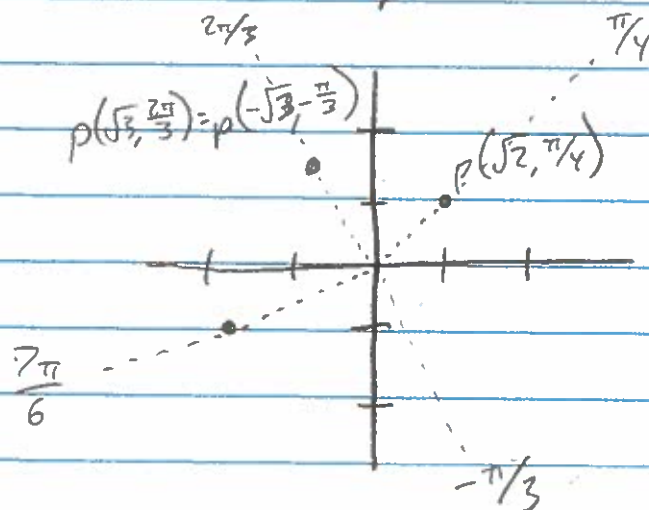 2π/3
π/4
p(√3, 2π/3) = p(-√3, -π/3)
P(√2, π/4)
7π/6
-π/3